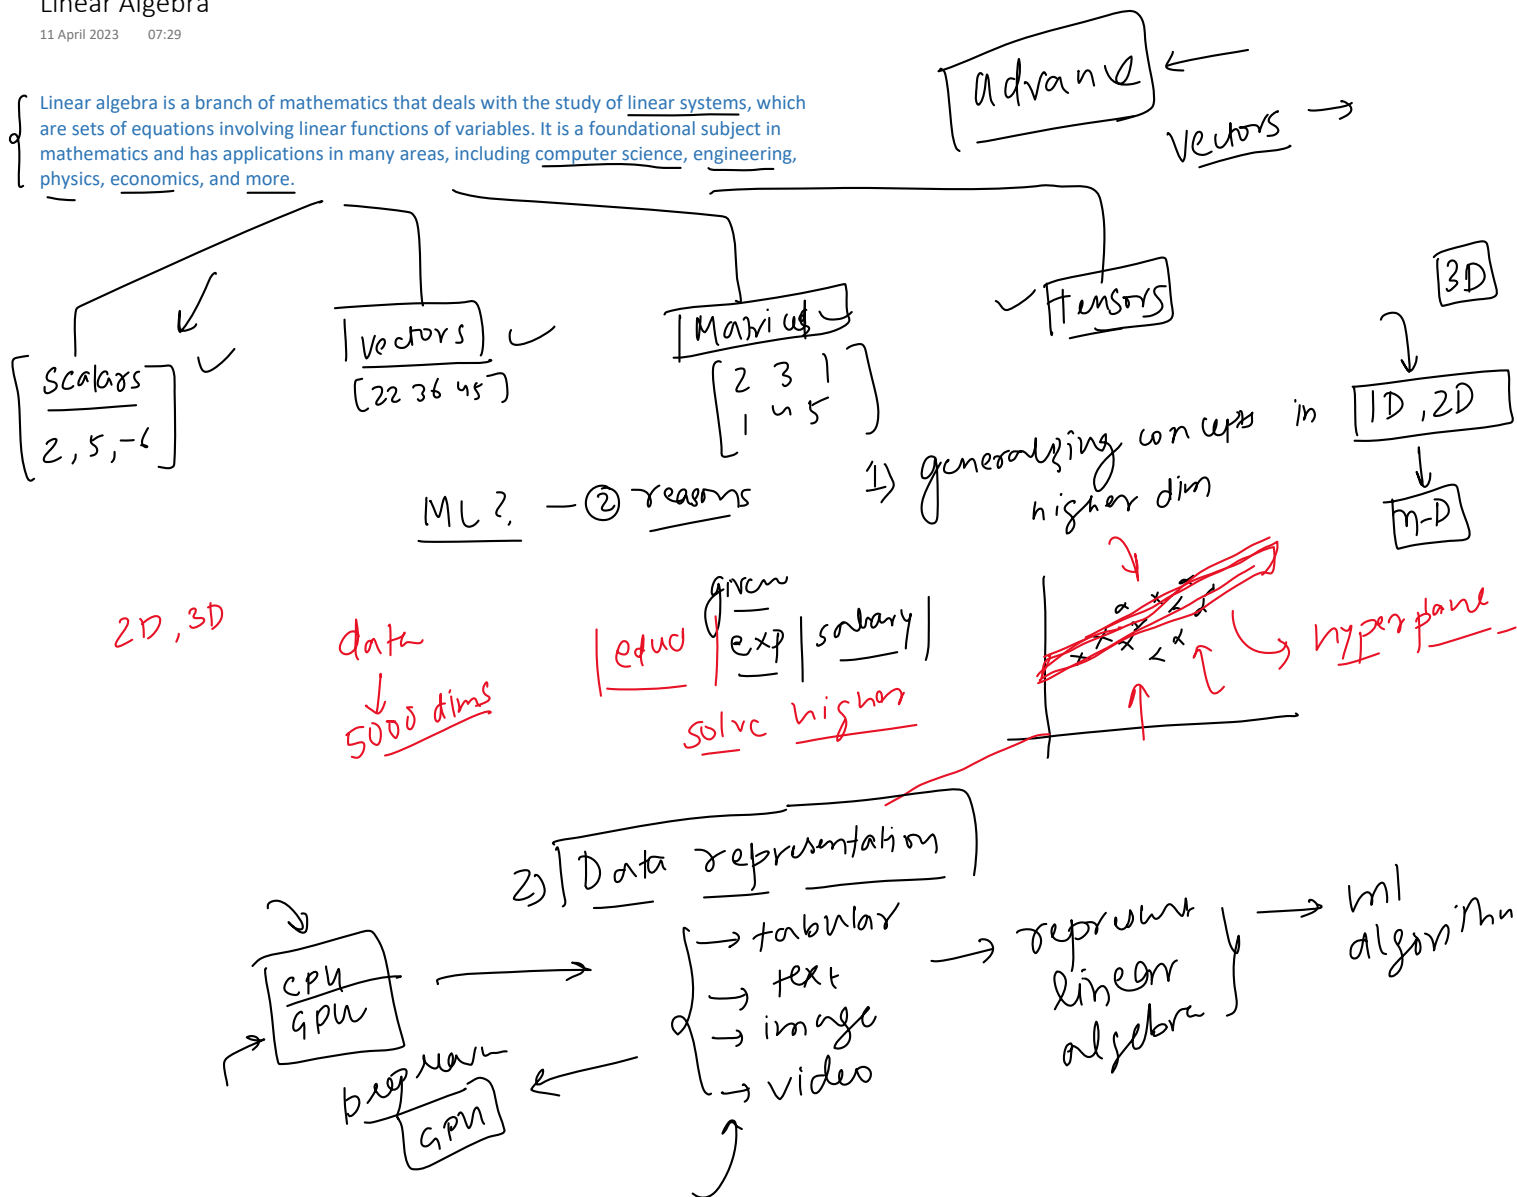 Linear Algebra
11 April 2023 07:29
Linear algebra is a branch of mathematics that deals with the study of linear systems, which
are sets of equations involving linear functions of variables. It is a foundational subject in
mathematics and has applications in many areas, including computer science, engineering,
physics, economics, and more.
advance
vectors
scalars
2, 5, -6
vectors
[22 36 45]
Matrices
2 3 1
1 4 5
tensors
3D
1D, 2D
n-D
ML? - 2 reasons
1) generalizing concepts in
higher dim
2D, 3D
data
5000 dims
given
educ exp salary
solve higher
hyperplane
2) Data representation
CPU
GPU
tabular
text
image
video
represent
linear
algebra
ml
algorithm
GPU